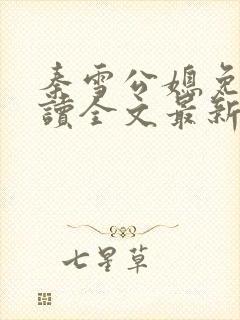 秦雪公媳免
讀全文最新
七星草